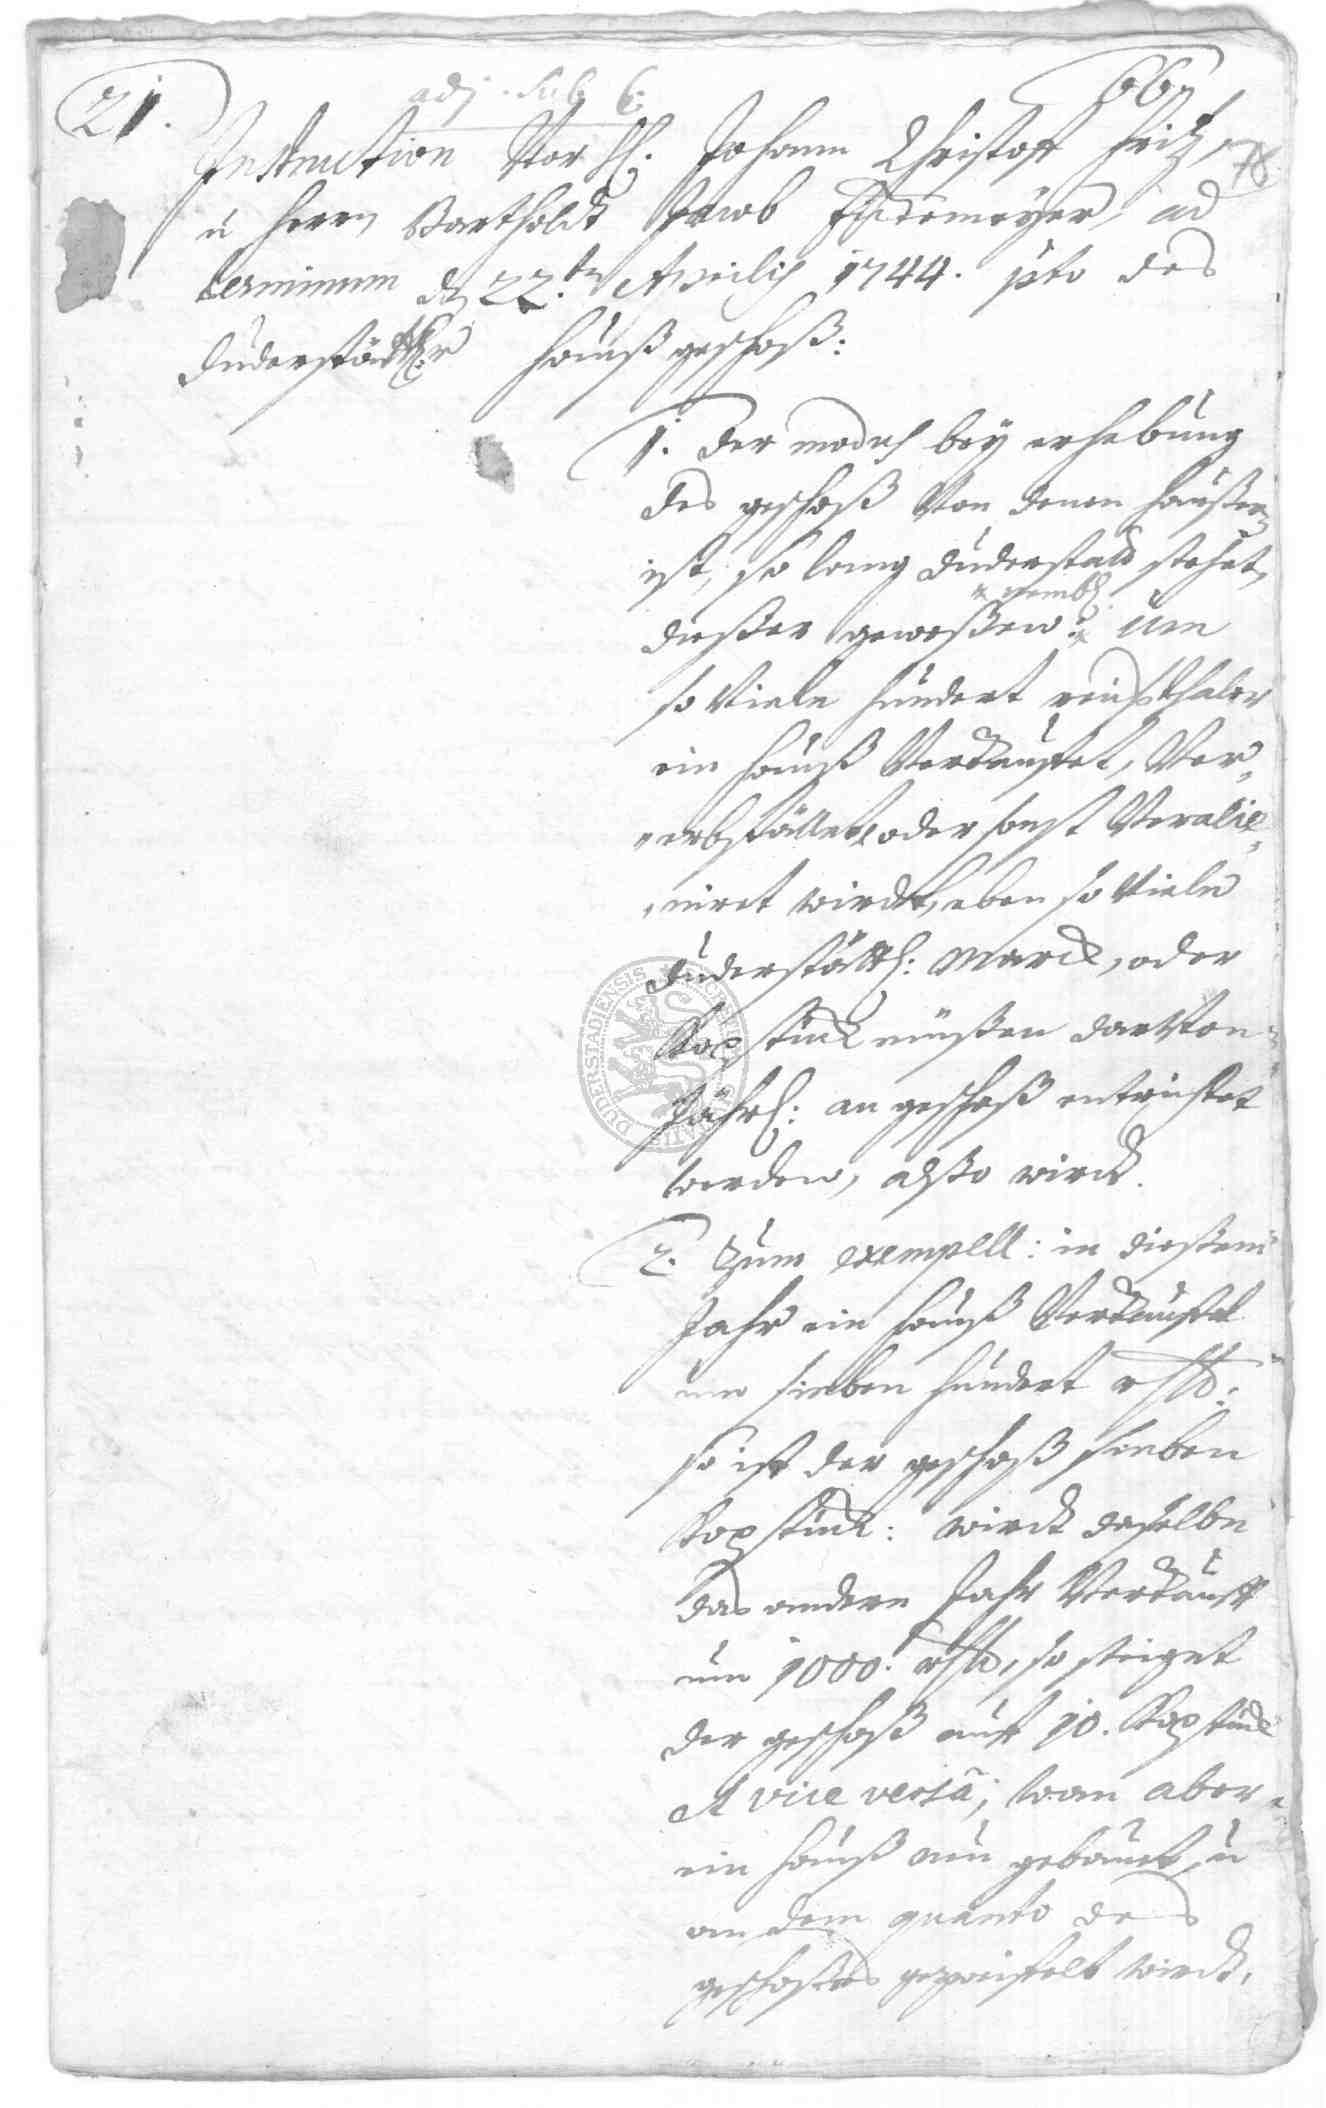 21.
adj. sub 6.
66.
78
Instruction Vor H. Johann Christoff Fritz,
u herrn Bartholdt Jacob Hudemeyer, ad
terminum d 22.ten Aprilis 1744. pto des
duderstädtl.r haußgeschoß:
1. der modus bey erhebung
des geschoß Von denen haußern
ist, so lang duderstatd stehet,
nembl.
dießer geweßen: um
so Viele hundert reichsthaler
ein hauß Verkauffet, Ver„
„erbfället oder sonst Veralie„
„niret wirdt, eben so Viele
duderstättl: Marck, oder
Kopstück müßen darVon
Jährl: an geschoß entrichtet
werden, alßo wirdt.
2. Zum exempell: in dießem
Jahr ein hauß Verkauffet
um sieben hundert rthlr:
so ist der geschoß sieben
Kopstück: wirdt daßelbe
das andere Jahr Verkaufft
um 1000. rthlr, so steiget
der geschoß auff 10. Kopstück
et vice versa; wan aber
ein hauß neu gebauet, u
an dem quanto des
geschoßes gezweiffelt wirdt,
DUDERSTADIENSIS